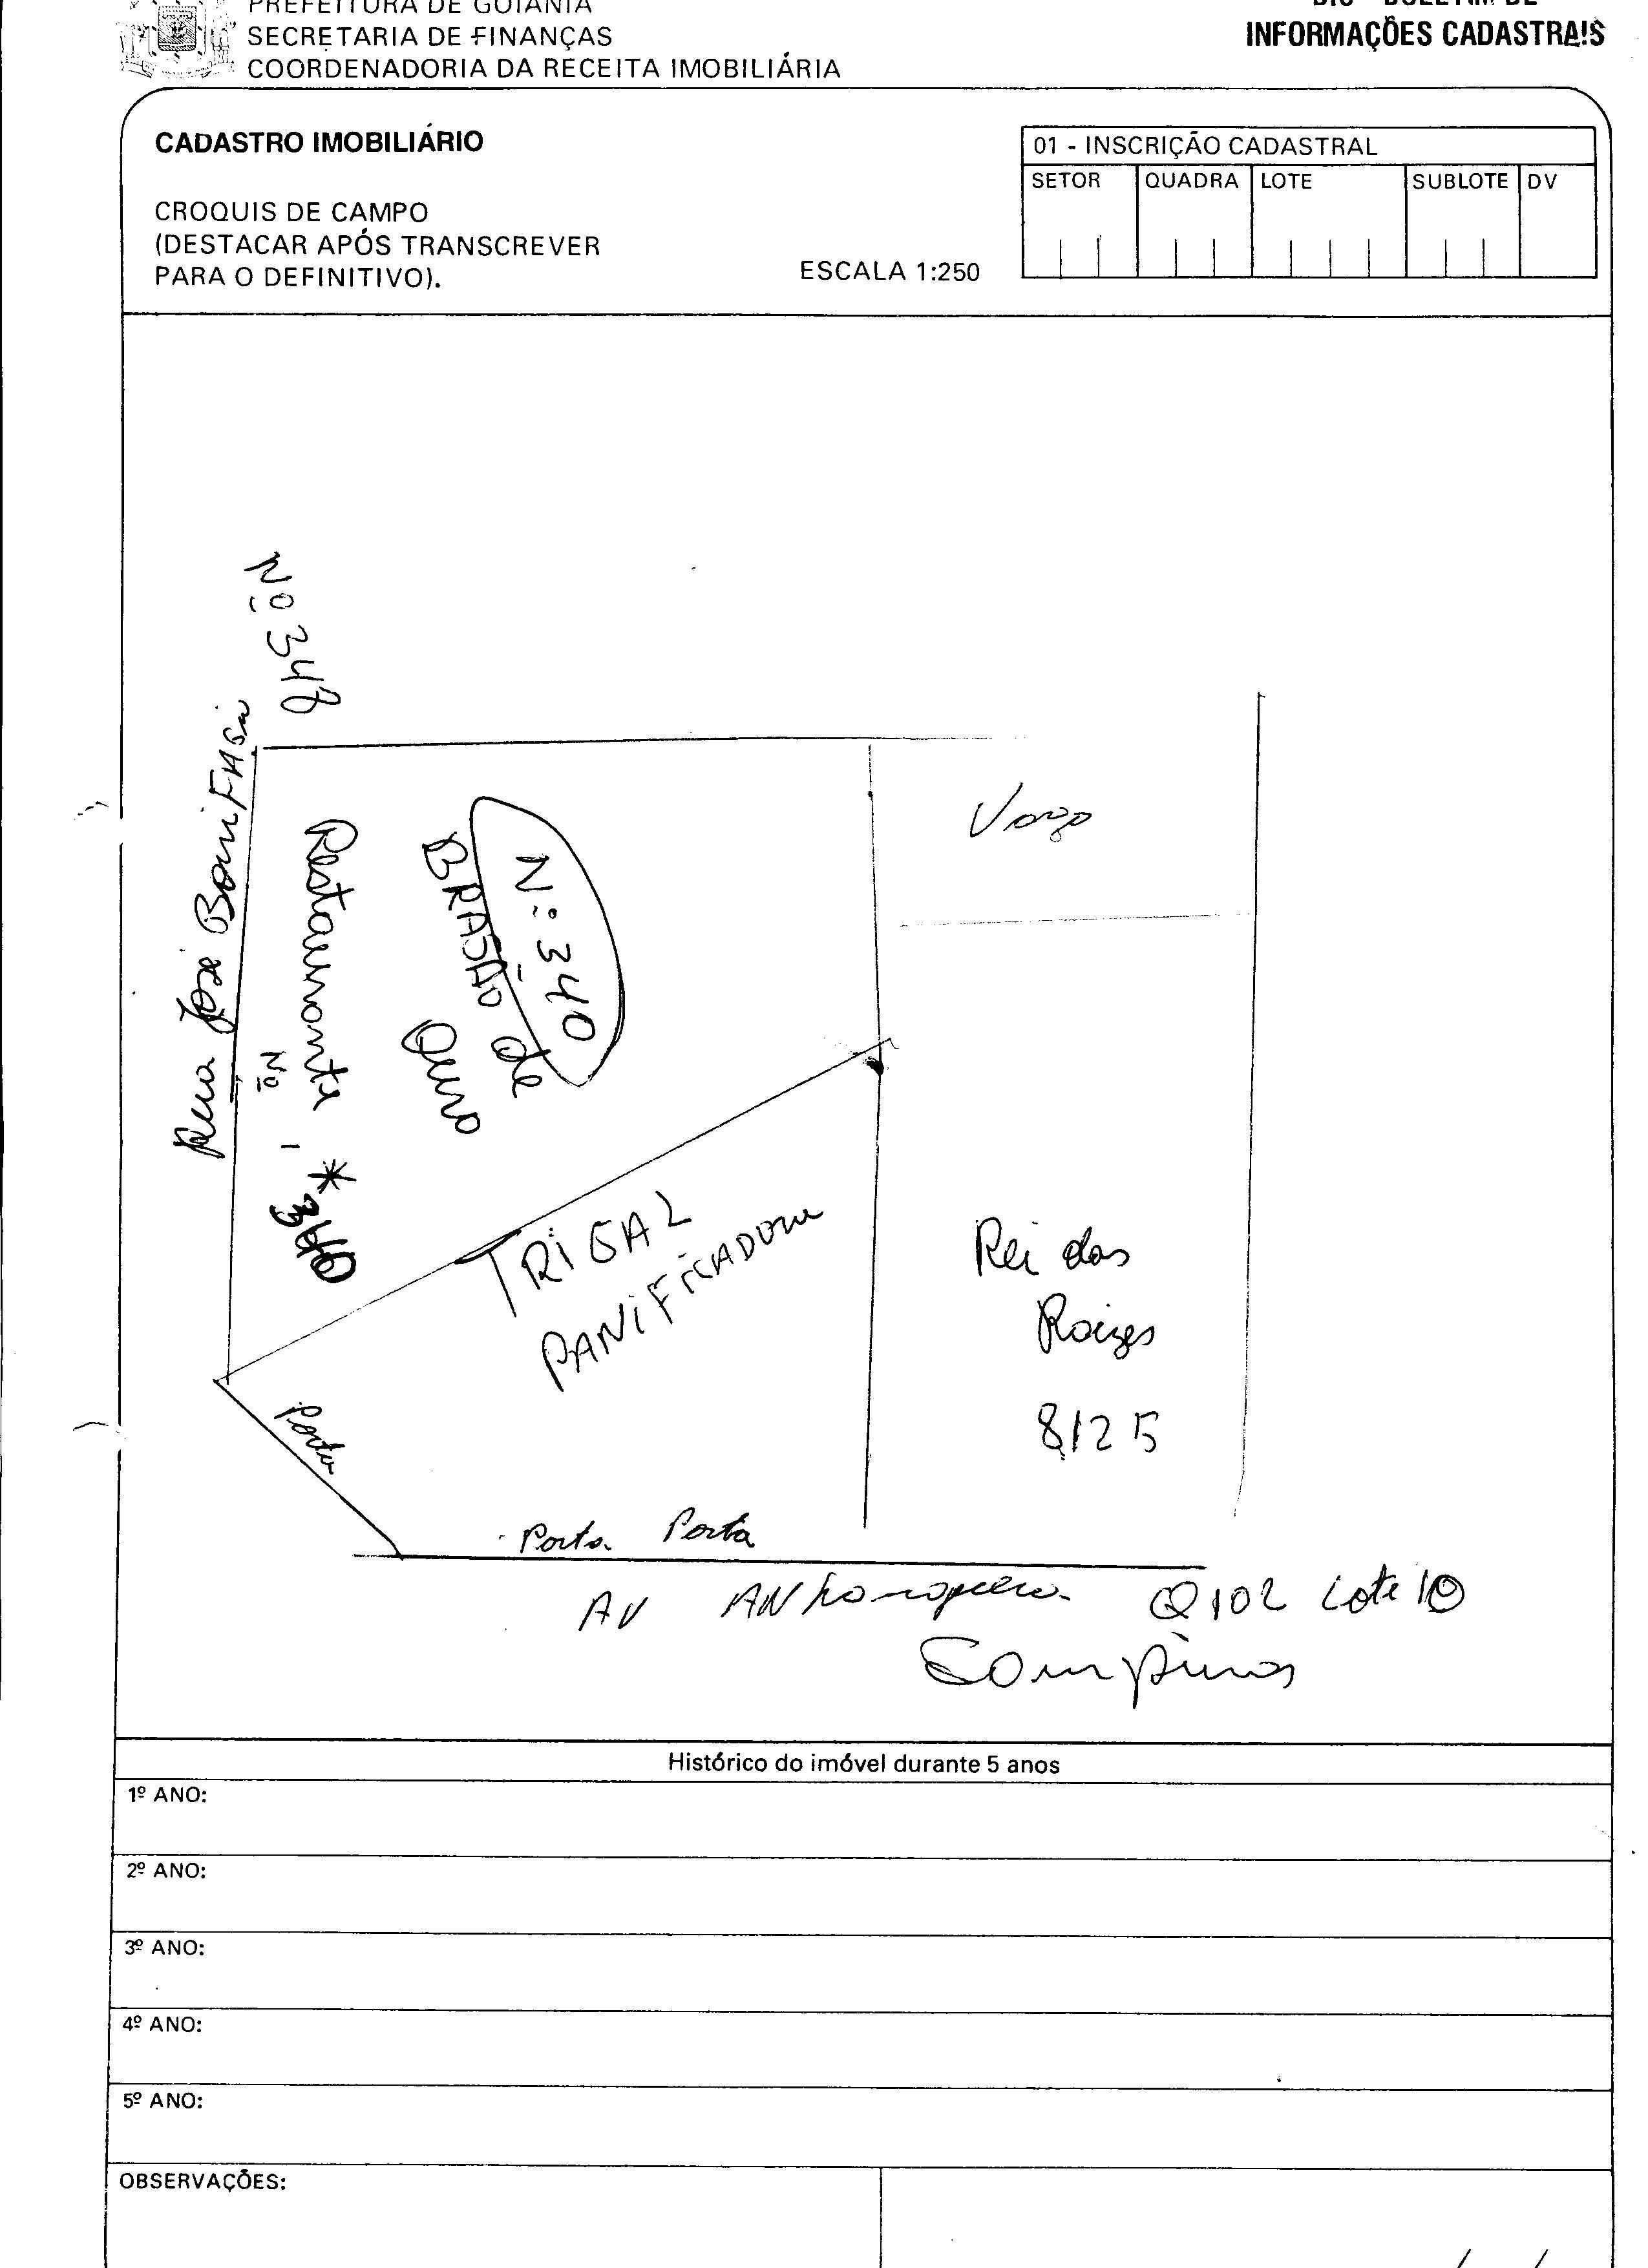 PREFEITURA DE GOIÂNIA
SECRETARIA DE FINANÇAS
COORDENADORIA DA RECEITA IMOBILIÁRIA
BIC - BOLETIM DE
INFORMAÇÕES CADASTRAIS
CADASTRO IMOBILIÁRIO
CROQUIS DE CAMPO
(DESTACAR APÓS TRANSCREVER
PARA O DEFINITIVO).
ESCALA 1:250
01 - INSCRIÇÃO CADASTRAL
SETOR QUADRA LOTE SUBLOTE DV
Nº 348
Rua José Bonifasi
Restaurante
Nº
* 340
BRASÃO de
Ouro
Nº 340
Vago
TRIGAL
PANIFICADORA
Rei das
Raizes
8125
Porta
Porta Porta
AV Anhanguera Q 102 Lote 10
Campinas
Histórico do imóvel durante 5 anos
1º ANO:
2º ANO:
3º ANO:
4º ANO:
5º ANO:
OBSERVAÇÕES: